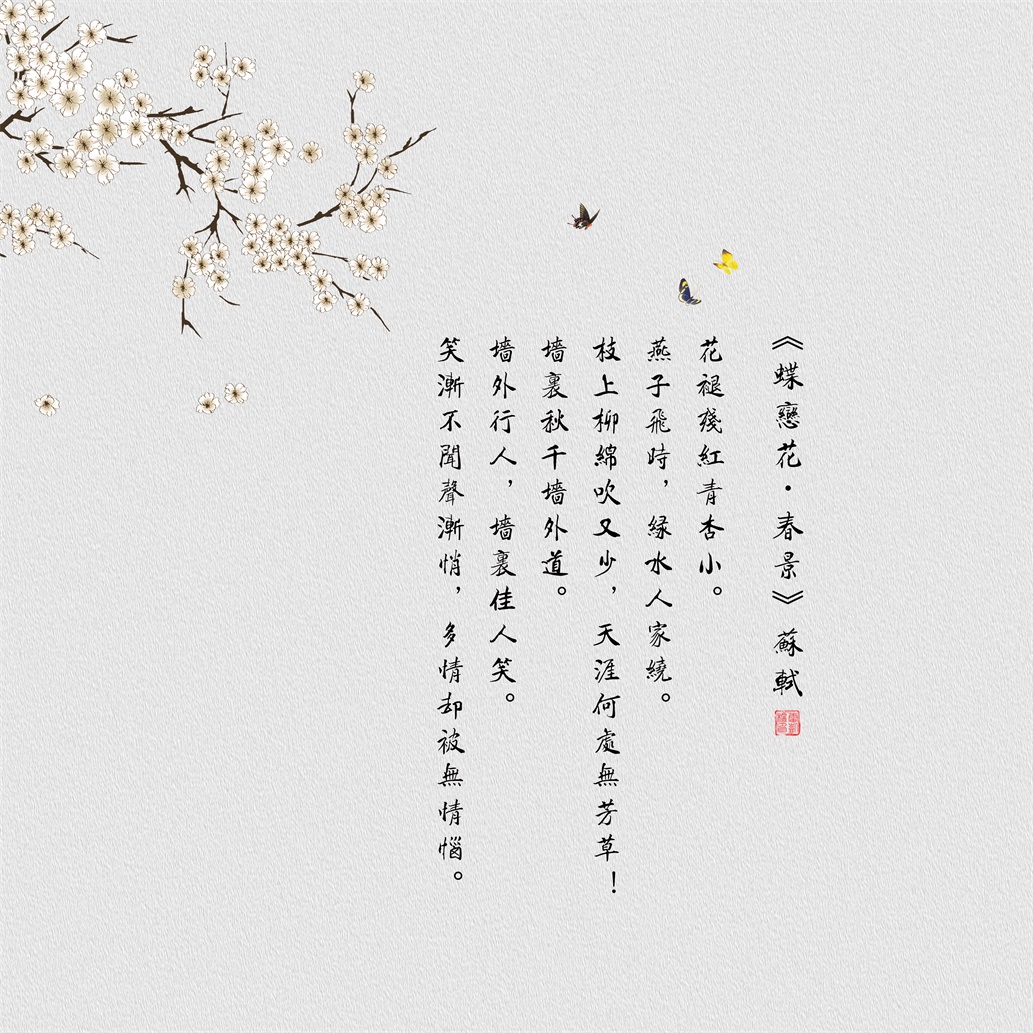 《蝶戀花·春景》蘇軾
花褪殘紅青杏小。
燕子飛時，緑水人家繞。
枝上柳綿吹又少，天涯何處無芳草！
墻裏秋千墻外道。
墻外行人，墻裏佳人笑。
笑漸不聞聲漸悄，多情却被無情惱。